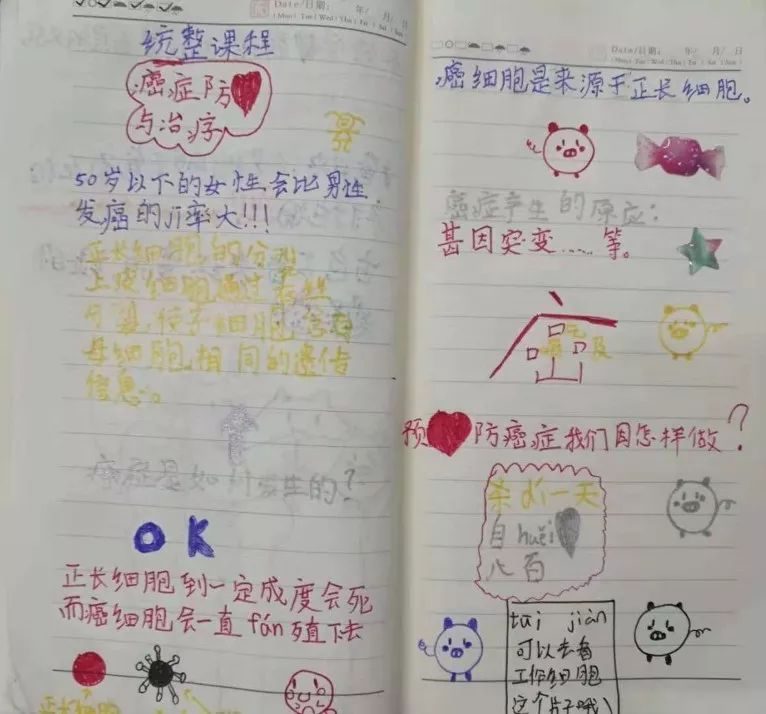 Date/日期: 年/ 月/ 日
Mon Tue Wed Thu Fri Sat Sun
统整课程
癌症防
与治疗
50岁以下的女性会比男性
发癌的jī率大!!!
正长细胞的分裂
上皮细胞通过有丝
分裂,
母细胞相同的遗传
信息。
癌症是如何发生的?
OK
正长细胞到一定成度会死
而癌细胞会一直fán殖下去
正长细胞
Date/日期: 年/ 月/ 日
Mon Tue Wed Thu Fri Sat Sun
癌细胞是来源于正长细胞。
癌症产生的原应:
基因突变……等。
预防癌症我们因怎样做?
杀dí一天
自huěi
八百
tuī jiàn
可以去看
工作细胞
这个片子哦